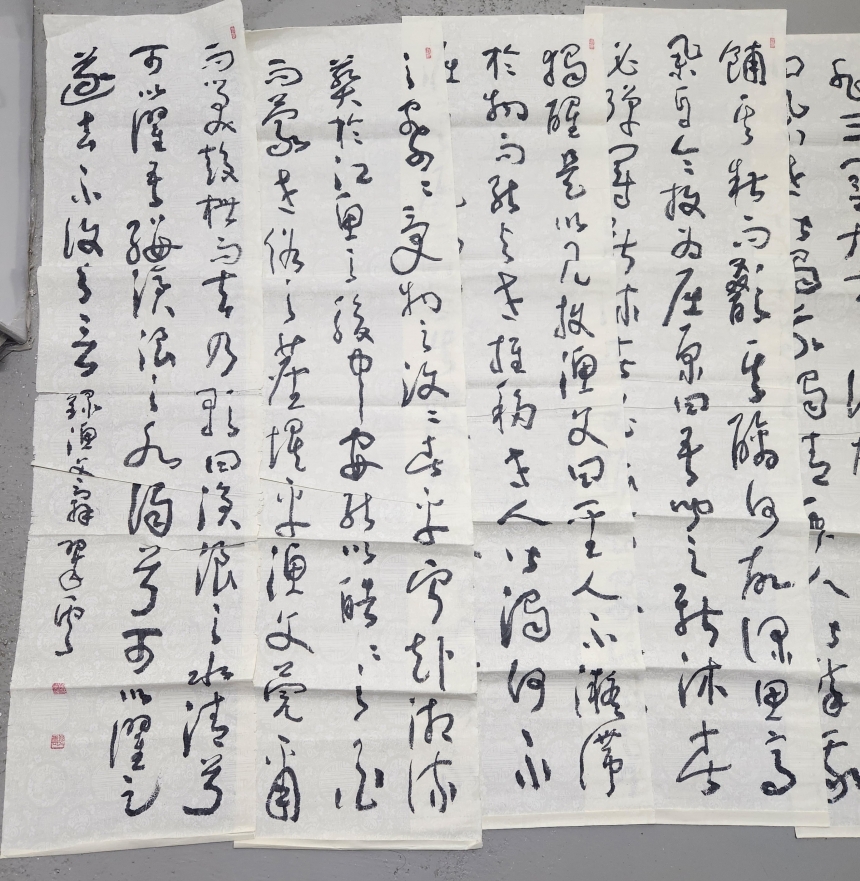 三閭大
曰舉世皆濁我獨清衆人皆醉我
餔其糟而歠其醨何故深思高
舉自令放為屈原曰吾聞之新沐者
必彈冠新
獨醒是以見放漁父曰聖人不凝滯
於物而能與世推移世人皆濁何不
之察々受物之汶々者乎寧赴湘流
葬於江魚之腹中安能以皓々之白
而蒙世俗之塵埃乎漁父莞爾
而笑鼓枻而去乃歌曰滄浪之水清兮
可以濯吾纓滄浪之水濁兮可以濯足
遂去不復與言 錄漁父辭 翠雲